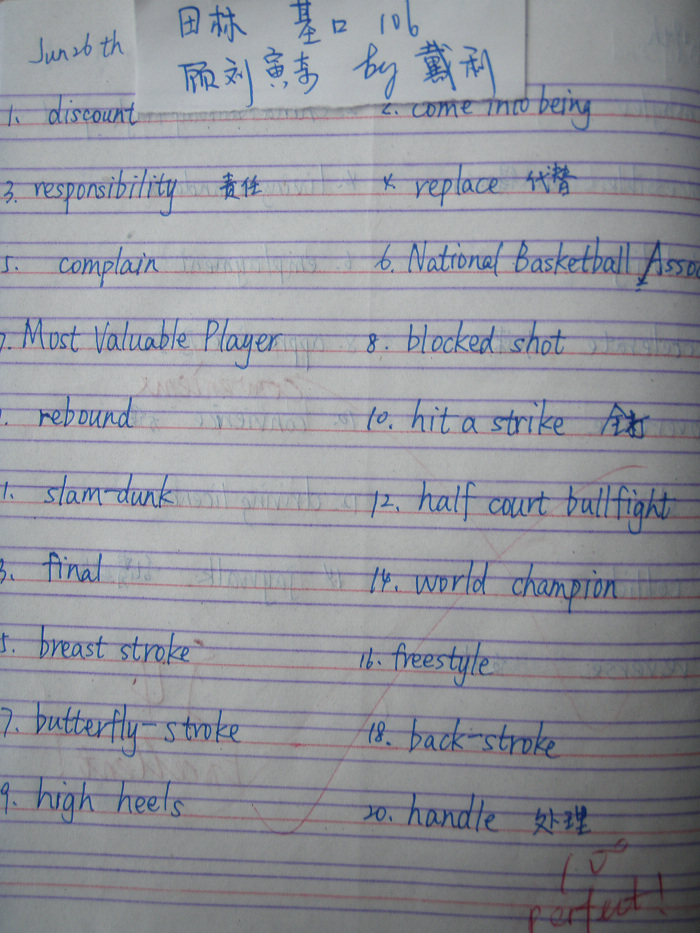 Jun 26 th
田林 基口 106
顾刘寅 by 戴利
1. discount 2. come into being
3. responsibility 责任 4. replace 代替
5. complain 6. National Basketball Assoc
7. Most Valuable Player 8. blocked shot
. rebound 10. hit a strike 全打
1. slam-dunk 12. half court bullfight
3. final 14. world champion
5. breast stroke 16. freestyle
7. butterfly-stroke 18. back-stroke
9. high heels 20. handle 处理
perfect!